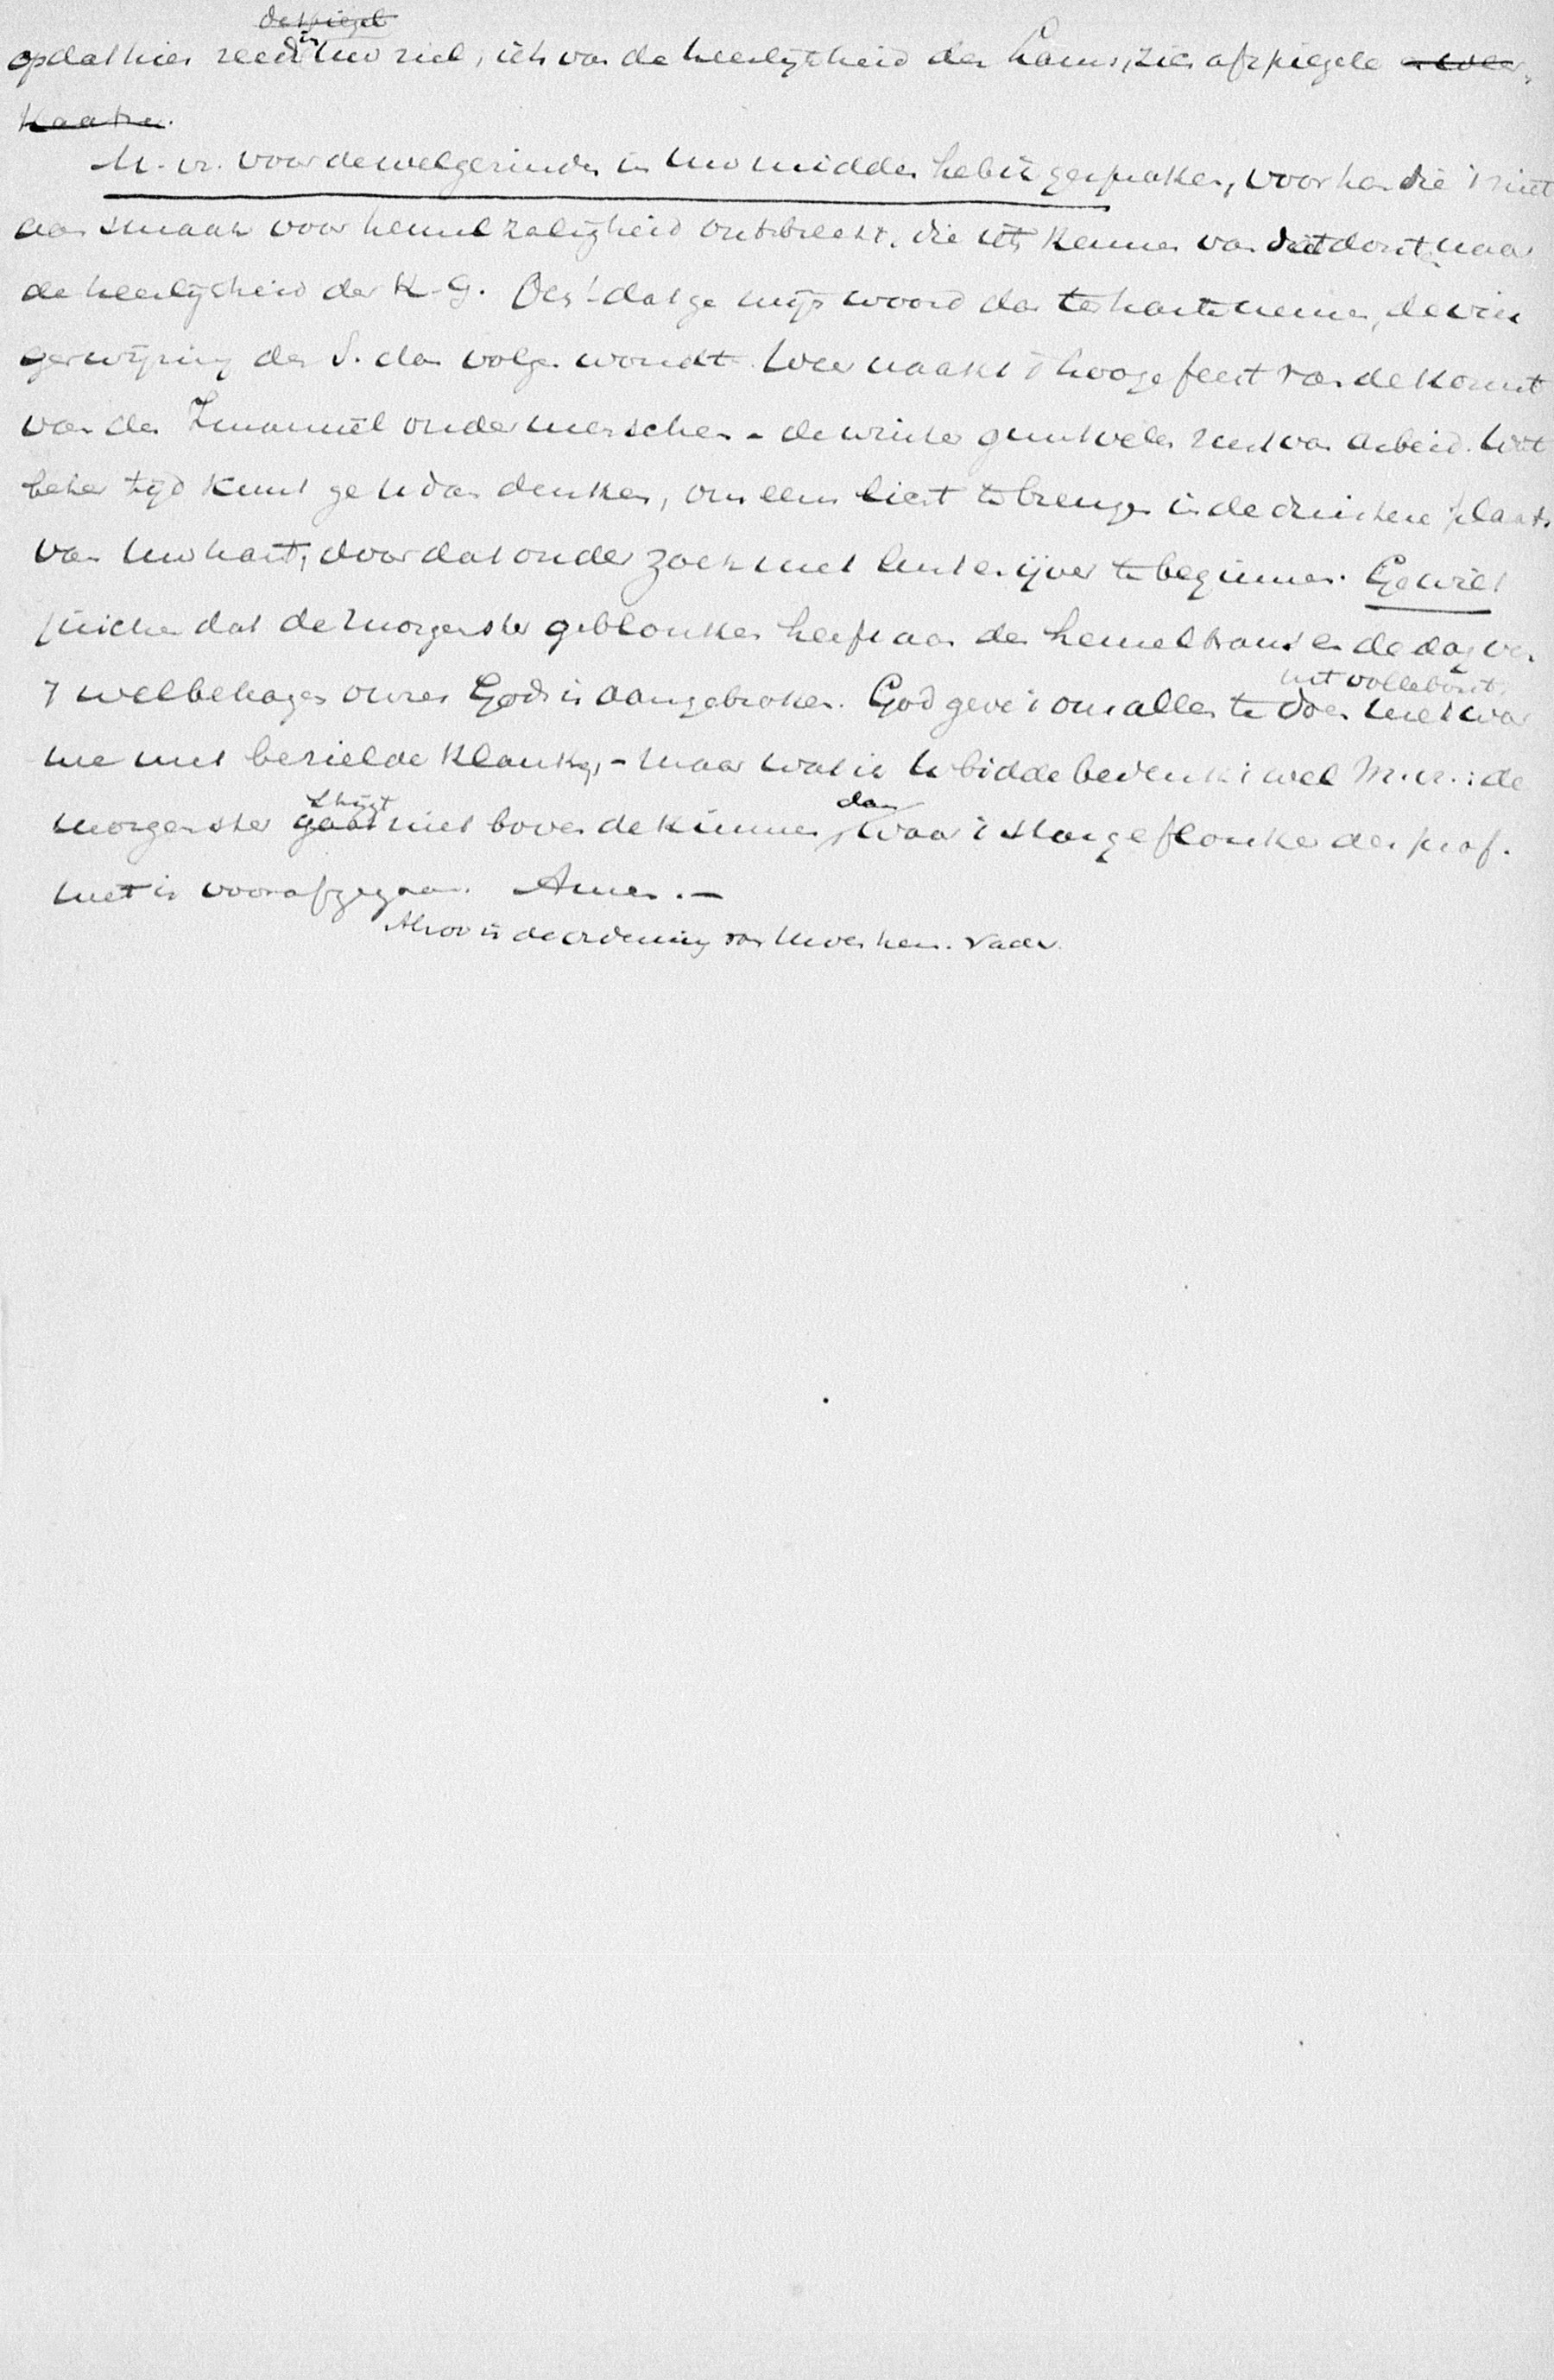 de spiegel
opdat hier reeds in uw ziel, iets van de heerlijkheid des Lams, zich afspiegele
M. vr. voor de welgezinden in uw midden heb ik gesproken, voor hen die 't niet
aan smaak voor hemelzaligheid ontbreekt, die iets kennen van dat dorsten naar
de heerlijkheid der K. G. Och! dat ge mijn woord dan ter harte neme, de vin
gerwijzing der S. dan volgen wondt. Weer naakt 't hooge feest van de komst
van den Immanuël onder menschen - de winter gunt velen rust van arbeid. Wat
beter tijd kunt ge u dan denken, om eens licht te brengen in de duistere plaats
van uw hart, door dat onderzoek met lust en ijver te beginnen. Ge wilt
juichen dat de morgenster geblonken heeft aan den hemeltrans en de dag van
't welbehagen onzes Gods is aangebroken. God geve 't ons allen te doen met war
uit volle borst,
me met bezielde klanken, - maar wat ik u bidde bedenk 't wel M. vr. : de
morgenster gaat stijgt niet boven de kimmen, dan waar 't stargeflonker der prof.
niet is voorafgegaan. Amen. -
Alzoo is de ordening van Uwen hem. Vader.